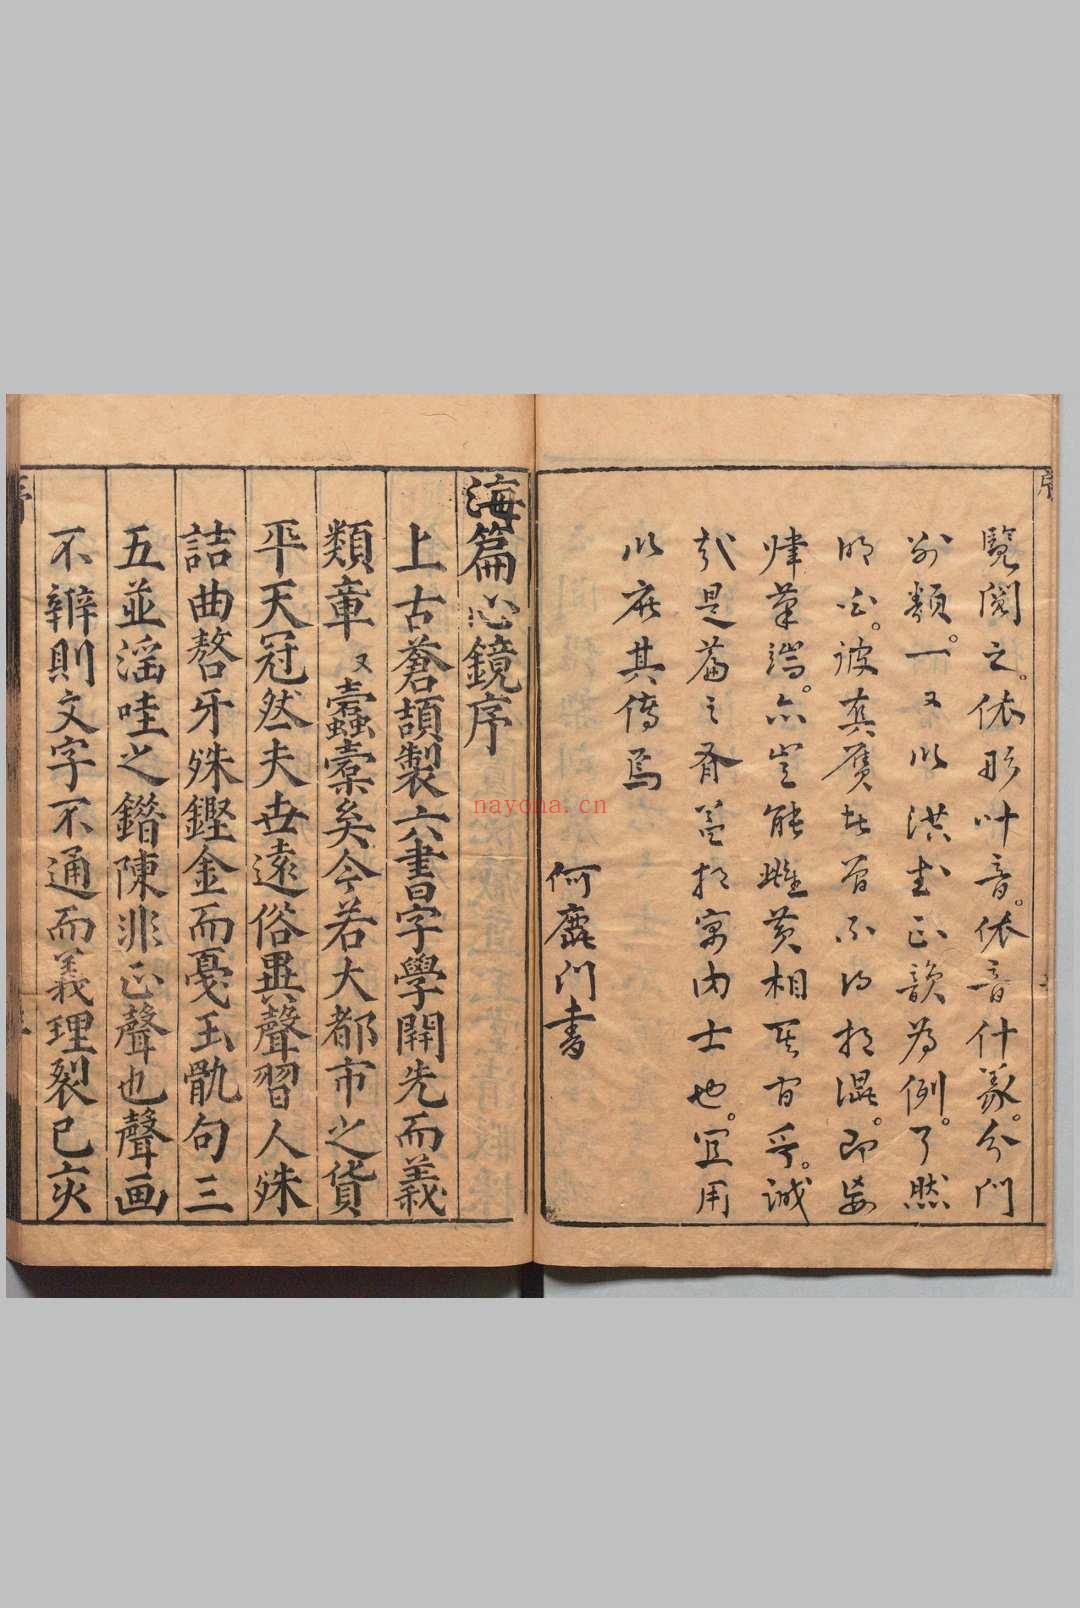 序
覽閱之。依形叶音。依音什彖。分門
別類。一又以洪武正韻為例。了然
明白。彼真贗者曾不得相混。即安
肆筆端。亦豈能雌黃相其間乎。誠
哉是篇之有益於寓內士也。宜用
以廣其傳焉
何鹿門書
海篇心鏡序
上古蒼頡製六書字學開先而義
類章又蠹橐矣今若大都市之貨
平天冠然夫世遠俗異聲習人殊
詰曲謷牙殊鏗金而戞玉骫句三
五並滛哇之鐕陳非正聲也聲画
不辨則文字不通而義理裂已亥
nayona.cn